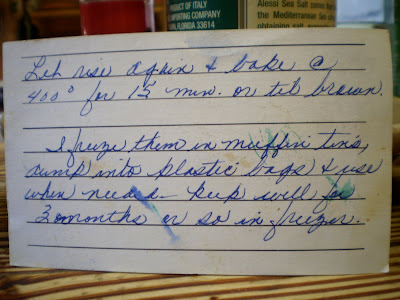 PRODUCT OF ITALY
IMPORTING COMPANY
FLORIDA 33614
Alessi Sea Salt
the Mediterranean
Let rise again & bake @
400° for 15 min. or til brown.
I freize them in muffin tins,
dump into plastic bags & use
when needed - keep well for
3 months or so in freezer.